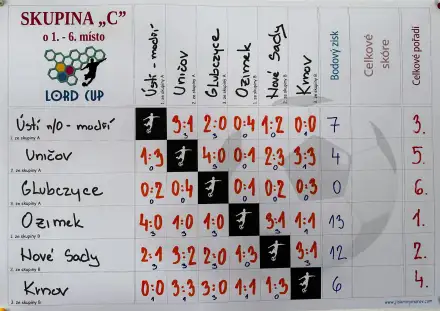 SKUPINA „C"
o 1. - 6. místo
LORD CUP
Ústí - modří
Uničov
Glubczyce
Ozimek
Nové Sady
Krnov
Bodový zisk
Celkové skóre
Celkové pořadí
Ústí n/O - modří 3:1 2:0 0:4 1:2 0:0 7 3.
1. ze skupiny A
Uničov 1:3 4:0 0:1 2:3 3:3 4 5.
2. ze skupiny A
Glubczyce 0:2 0:4 0:1 0:2 0:3 0 6.
3. ze skupiny A
Ozimek 4:0 1:0 1:0 3:1 1:1 13 1.
1. ze skupiny B
Nové Sady 2:1 3:2 2:0 1:3 3:1 12 2.
2. ze skupiny B
Krnov 0:0 3:3 3:0 1:1 1:3 6 4.
3. ze skupiny B